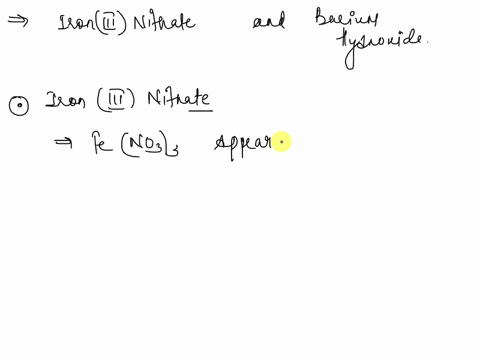 ⇒ Iron(III) Nitrate and Barium
Hydroxide.
⊙ Iron (III) Nitrate
⇒ Fe (NO3)3 Appear